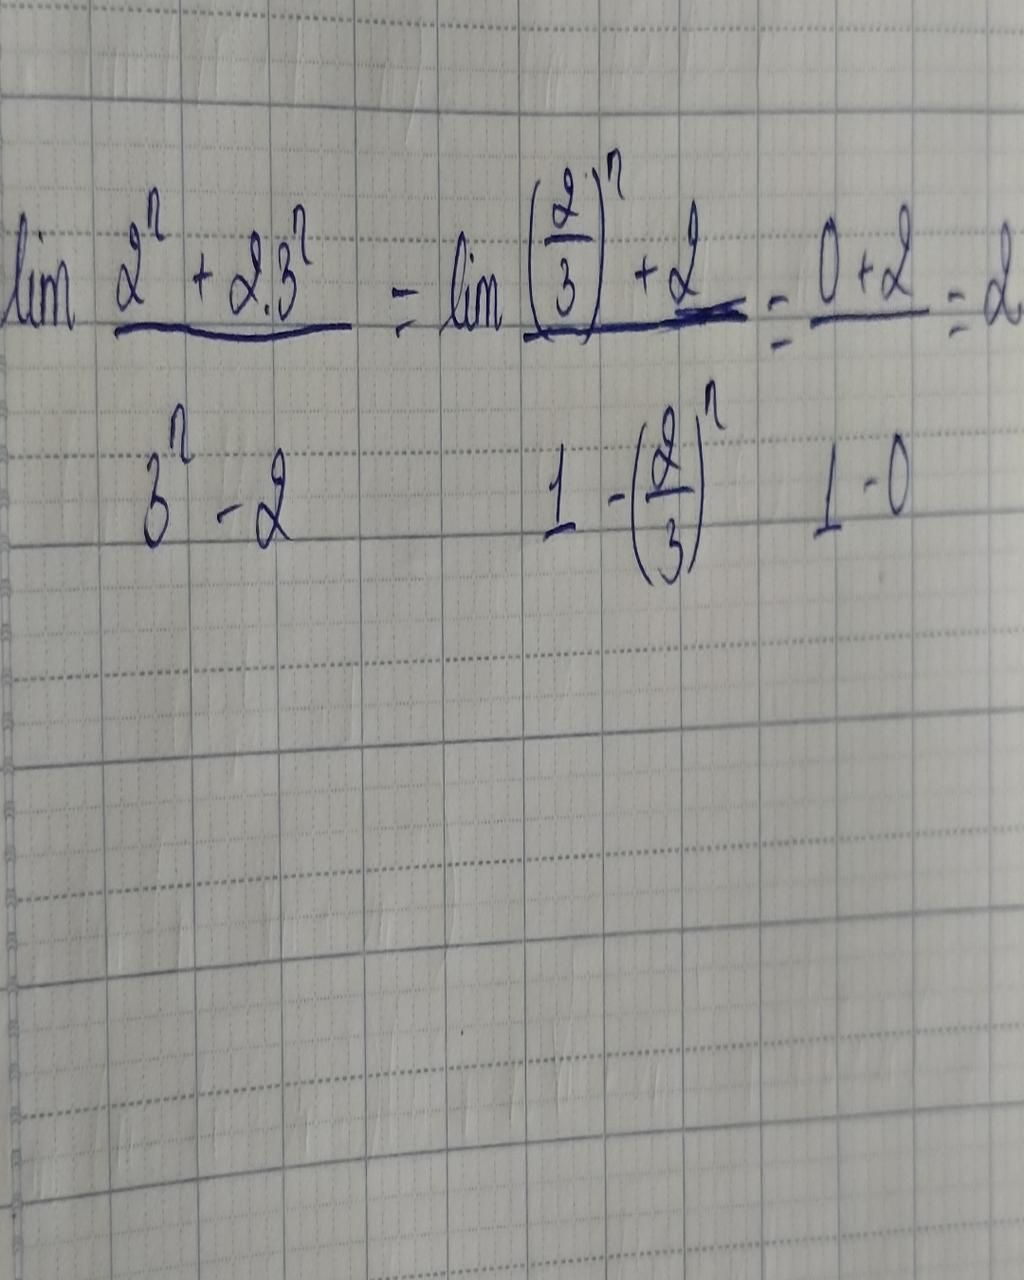 lim (2^n + 2.3^n)/(3^n - 2) = lim ((2/3)^n + 2)/(1 - (2/3)^n) = (0 + 2)/(1 - 0) = 2